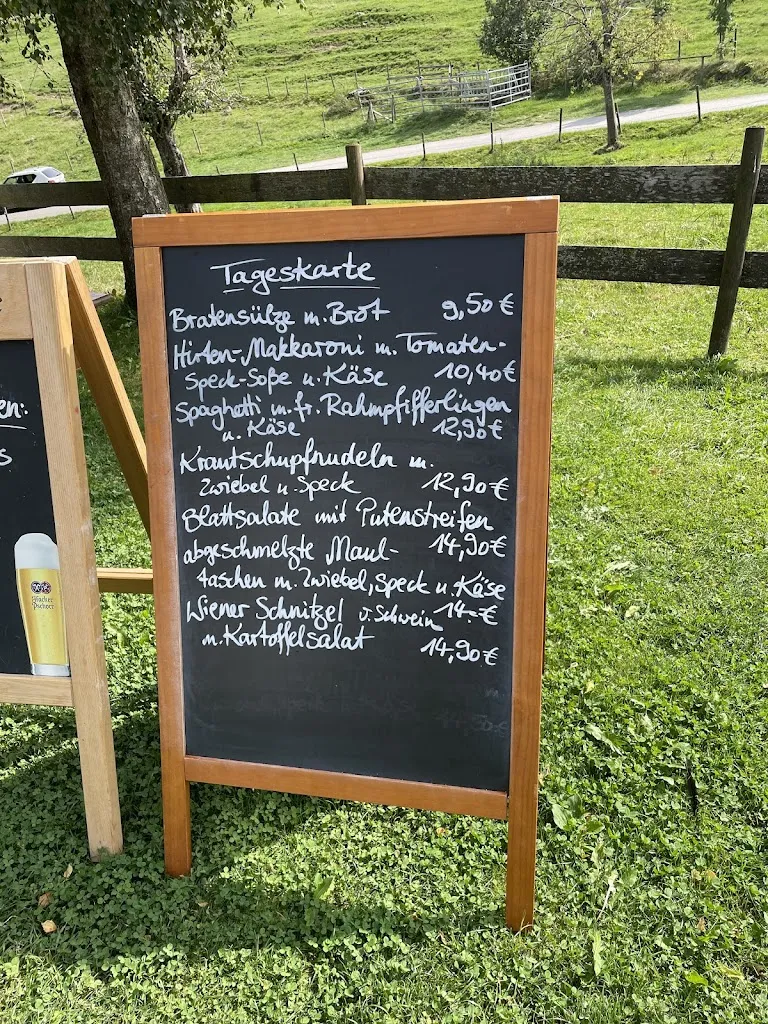 Tageskarte
Bratensülze m. Brot 9,50 €
Hirten-Makkaroni m. Tomaten-
Speck-Soße u. Käse 10,40 €
Spaghetti m. fr. Rahmpfifferlingen
u. Käse 12,90 €
Krautschupfnudeln m.
Zwiebel u. Speck 12,90 €
Blattsalate mit Putenstreifen
14,90 €
abgeschmelzte Maul-
taschen m. Zwiebel, Speck u. Käse
14.- €
Wiener Schnitzel v. Schwein
m. Kartoffelsalat 14,90 €
en:
s
Hacker
Pschorr